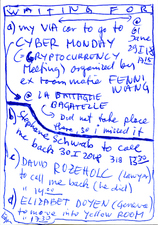 WAITING FOR
a) my VIA car to go to @ GI
CYBER MONDAY June
= CRYPTOCURRENCY 29 I 18
Meeting) organized by
ex trommatic FENNI
WANG
@ LA BATTAGIE
BAGATELLE
Did not take place
there, so i missed it
b) Stephane Schwab to call
me back 30 I 2018 318 1330
c) DAVID ROZEHOLC (lawyer)
to call me back (he did)
" 14
d) ELIZABET DOYEN (Goreve)
to move into YELLOW ROOM